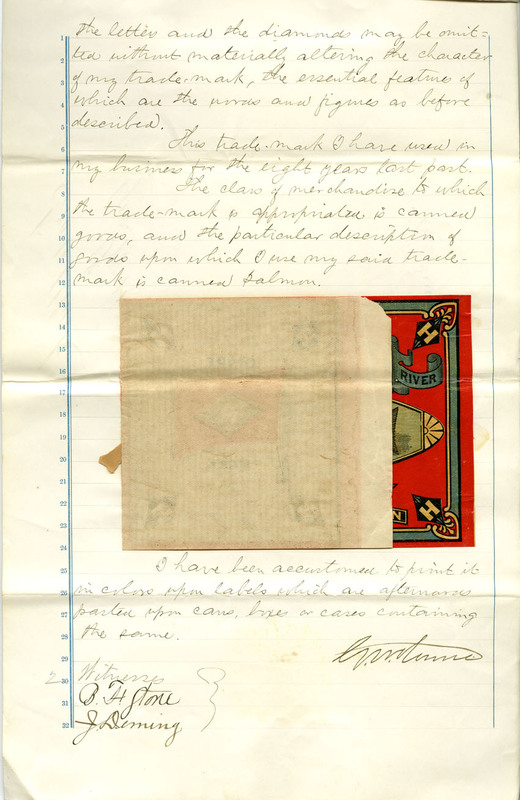 the letters and the diamonds may be omit-
ted without materially altering the character
of my trade-mark, the essential features of
which are the words and figures as before
described.
This trade-mark I have used in
my business for the eight years last past.
The class of merchandise to which
the trade-mark is appropriated is canned
goods, and the particular description of
goods upon which I use my said trade-
mark is canned Salmon.
H
RIVER
H
N
I have been accustomed to print it
in colors upon labels which are afterwards
pasted upon cans, boxes or cases containing
the same.
2 Witnesses
B. F. Stone
J. Deming
1
2
3
4
5
6
7
8
9
10
11
12
13
14
15
16
17
18
19
20
21
22
23
24
25
26
27
28
29
30
31
32